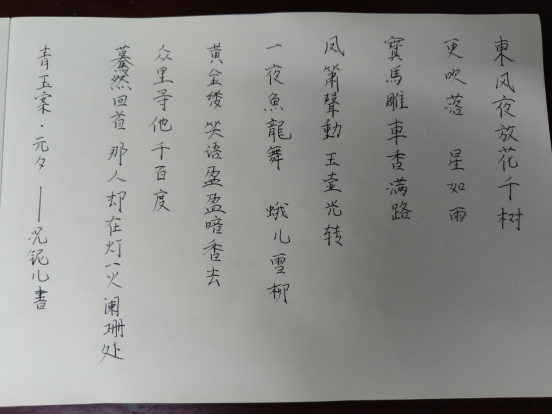 東风夜放花千树
更吹落 星如雨
寳馬雕車香满路
凤箫聲動 玉壶光转
一夜魚龍舞 蛾儿雪柳
黄金缕 笑语盈盈暗香去
众里寻他千百度
蓦然回首 那人却在灯火阑珊处
青玉案·元夕 ——兄锐儿書